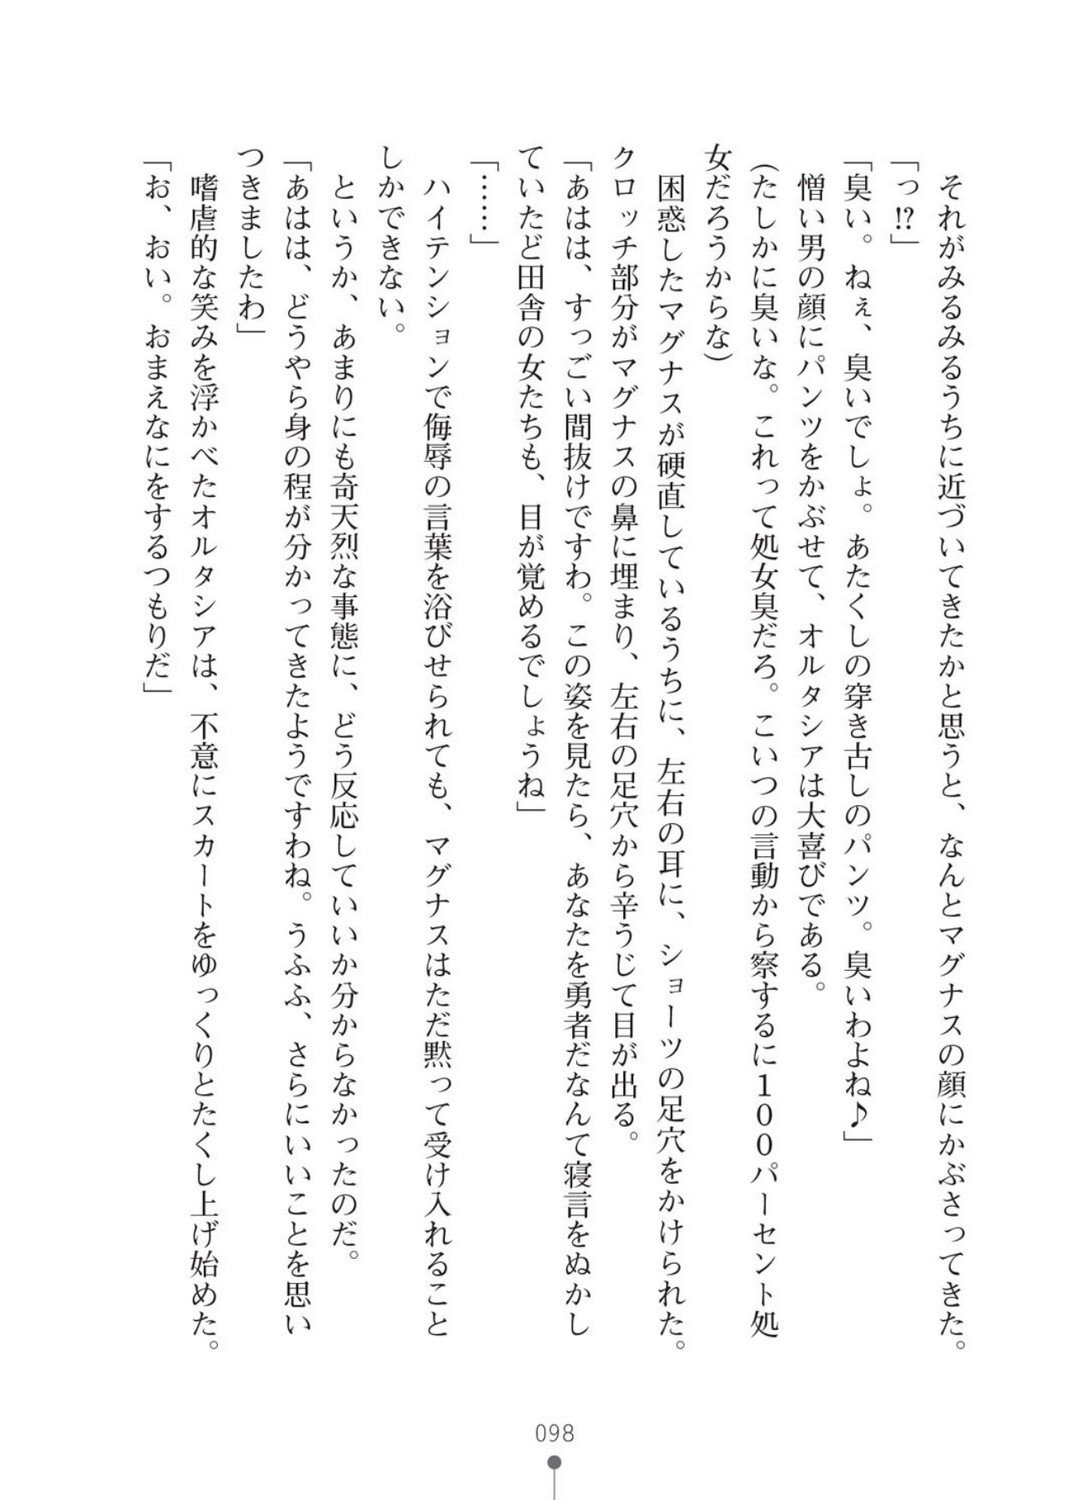 それがみるみるうちに近づいてきたかと思うと、なんとマグナスの顔にかぶさってきた。
「っ!?」
「臭い。ねぇ、臭いでしょ。あたくしの穿き古しのパンツ。臭いわよね♪」
憎い男の顔にパンツをかぶせて、オルタシアは大喜びである。
(たしかに臭いな。これって処女臭だろ。こいつの言動から察するに100パーセント処
女だろうからな)
困惑したマグナスが硬直しているうちに、左右の耳に、ショーツの足穴をかけられた。
クロッチ部分がマグナスの鼻に埋まり、左右の足穴から辛うじて目が出る。
「あはは、すっごい間抜けですわ。この姿を見たら、あなたを勇者だなんて寝言をぬかし
ていたど田舎の女たちも、目が覚めるでしょうね」
「……」
ハイテンションで侮辱の言葉を浴びせられても、マグナスはただ黙って受け入れること
しかできない。
というか、あまりにも奇天烈な事態に、どう反応していいか分からなかったのだ。
「あはは、どうやら身の程が分かってきたようですわね。うふふ、さらにいいことを思い
つきましたわ」
嗜虐的な笑みを浮かべたオルタシアは、不意にスカートをゆっくりとたくし上げ始めた。
「お、おい。おまえなにをするつもりだ」
098